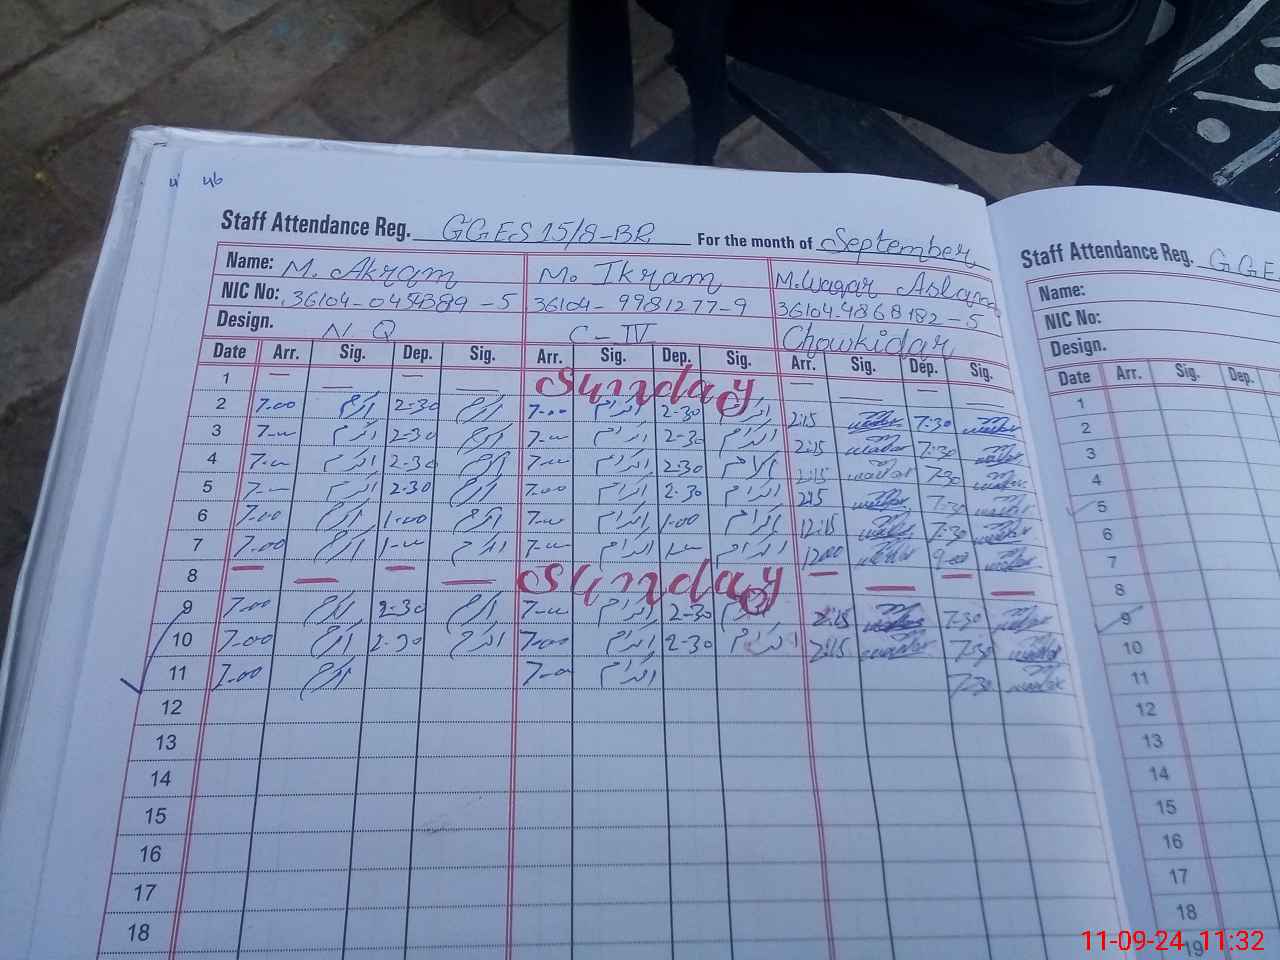 46
Staff Attendance Reg. GGES 15/8-BR For the month of September
Name: M. Akram M. Ikram M. Waqar Aslam
NIC No: 36104-0454389-5 36104-9981277-9 36104-4868182-5
Design. N-Q C-IV Chowkidar
Date Arr. Sig. Dep. Sig. Arr. Sig. Dep. Sig. Arr. Sig. Dep. Sig.
1 — — — — Sunday — — — —
2 7-00 اکرم 2-30 اکرم 7-00 اکرام 2-30 اکرام 2:15 7-30
3 7-00 اکرم 2-30 اکرم 7-00 اکرام 2-30 اکرام 2:15 7:30
4 7-00 اکرم 2-30 اکرم 7-00 اکرام 2-30 اکرام 2:15 7-30
5 7-00 اکرم 2-30 اکرم 7-00 اکرام 2-30 اکرام 2:15 7-30
6 7-00 اکرم 1-00 اکرم 7-00 اکرام 1-00 اکرام 12:15 7-30
7 7-00 اکرم 1-00 اکرم 7-00 اکرام 1-00 اکرام 1200 9-00
8 — — — — Sunday — — — —
9 7-00 اکرم 2-30 اکرم 7-00 اکرام 2-30 اکرام 2:15 7-30
10 7-00 اکرم 2-30 اکرم 7-00 اکرام 2-30 اکرام 2:15 7:30
11 7-00 اکرم 7-00 اکرام 7-30
12
13
14
15
16
17
18
Staff Attendance Reg. GGE
Name:
NIC No:
Design.
Date Arr. Sig. Dep.
1
2
3
4
5
6
7
8
9
10
11
12
13
14
15
16
17
18
19
11-09-24 11:32